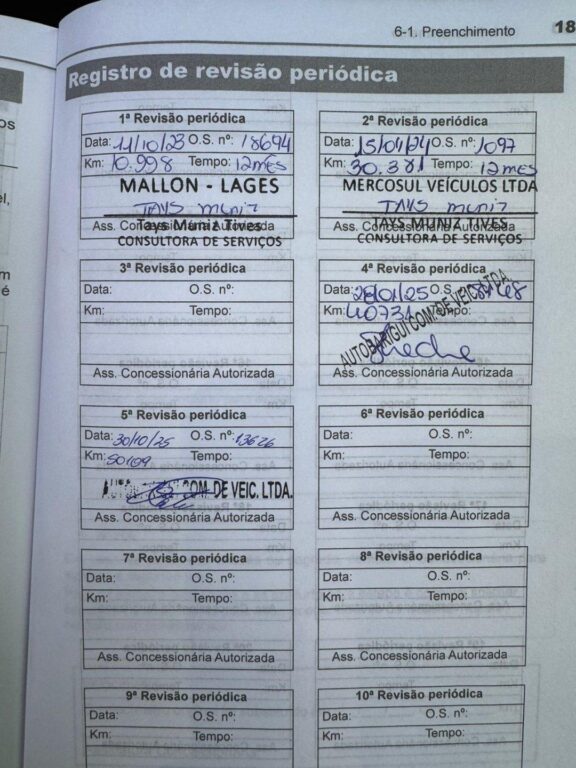 6-1. Preenchimento 18
Registro de revisão periódica
1ª Revisão periódica
Data: 11/10/23 O.S. nº: 18694
Km: 10.998 Tempo: 12 mes
MALLON - LAGES
TAYS MUNIZ
Tays Muniz Tives
Ass. Concessionária Autorizada
CONSULTORA DE SERVIÇOS
2ª Revisão periódica
Data: 15/04/24 O.S. nº: 1097
Km: 30.381 Tempo: 12 mes
MERCOSUL VEÍCULOS LTDA
TAYS MUNIZ
TAYS MUNIZ TIVES
Ass. Concessionária Autorizada
CONSULTORA DE SERVIÇOS
3ª Revisão periódica
Data: O.S. nº:
Km: Tempo:
Ass. Concessionária Autorizada
4ª Revisão periódica
Data: 28/01/25 O.S.
Km: 40734
AUTOBARIGUI COM. DE VEIC. LTDA.
Ass. Concessionária Autorizada
5ª Revisão periódica
Data: 30/10/25 O.S. nº: 13626
Km: 50109 Tempo:
COM. DE VEIC. LTDA.
Ass. Concessionária Autorizada
6ª Revisão periódica
Data: O.S. nº:
Km: Tempo:
Ass. Concessionária Autorizada
7ª Revisão periódica
Data: O.S. nº:
Km: Tempo:
Ass. Concessionária Autorizada
8ª Revisão periódica
Data: O.S. nº:
Km: Tempo:
Ass. Concessionária Autorizada
9ª Revisão periódica
Data: O.S. nº:
Km: Tempo:
10ª Revisão periódica
Data: O.S. nº:
Km: Tempo: